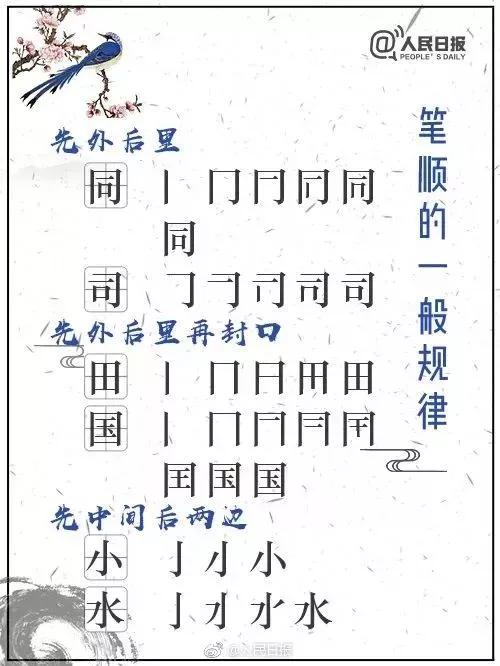 @人民日报
PEOPLE'S DAILY
笔顺的一般规律
先外后里
同 丨 冂
同
司 𠃌 司
先外后里再封口
田 丨 冂 田
国 丨 冂
国
先中间后两边
小 亅 小
水 亅 水
@人民日报